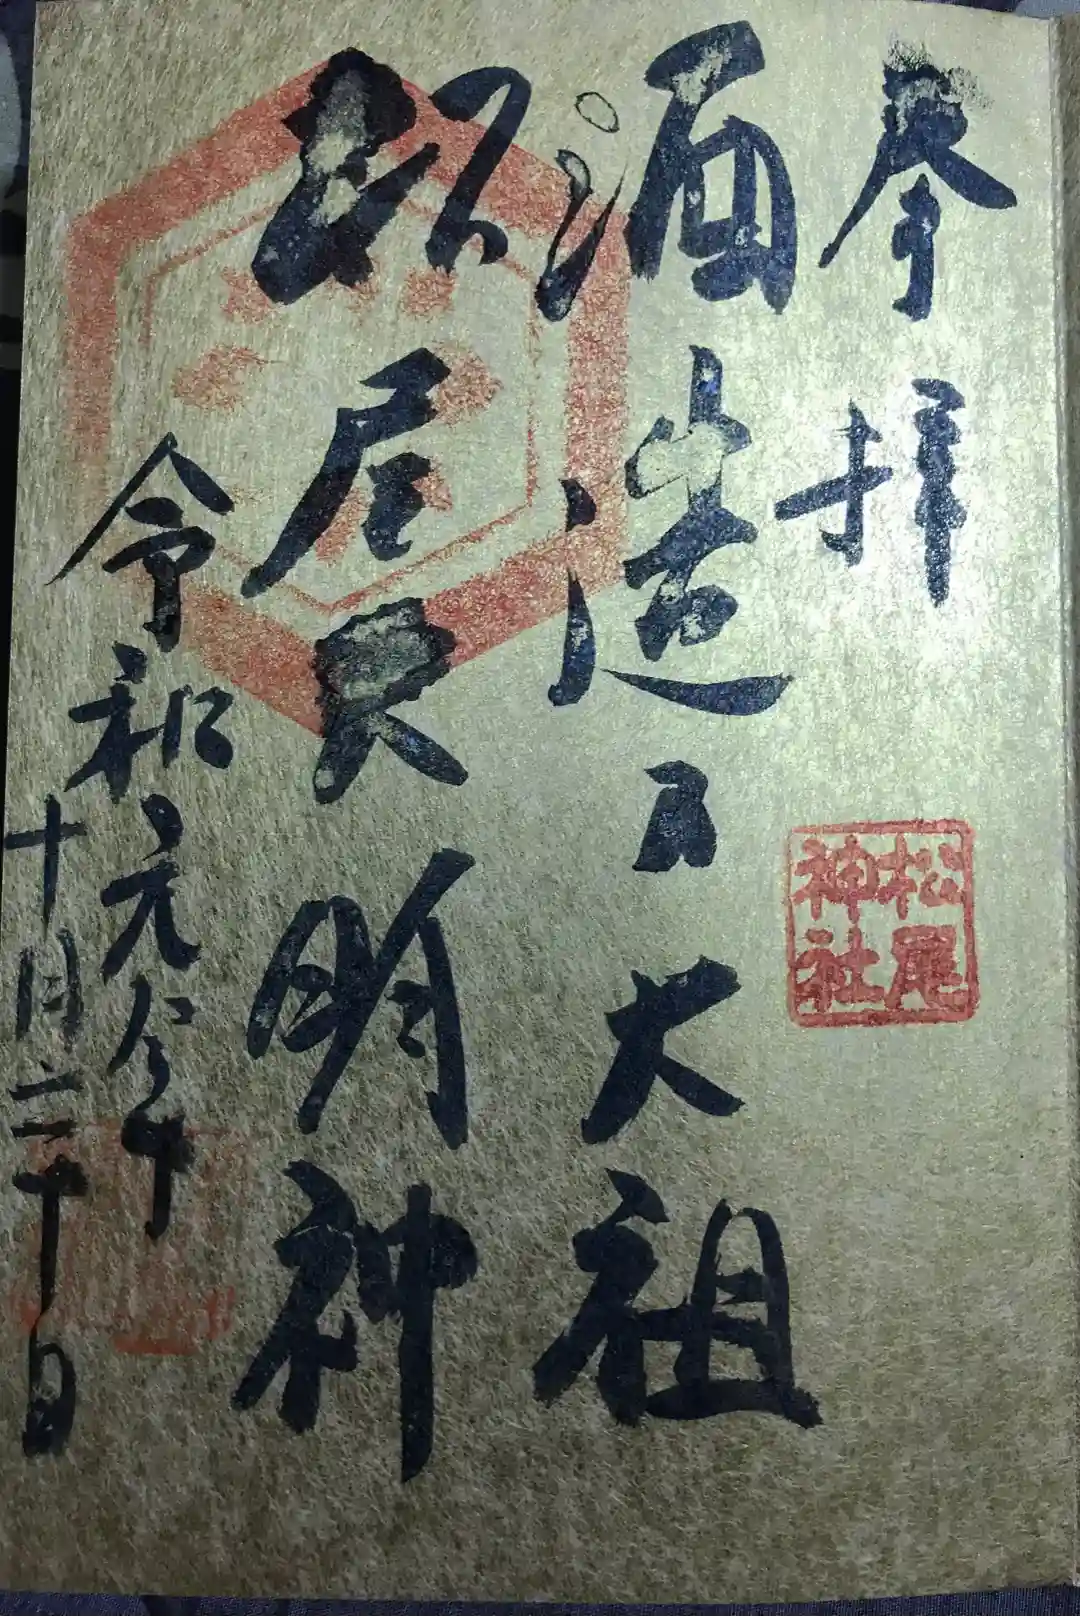 奉拝
酒造乃大祖
松尾大明神
令和元年
十月二十日
松尾
神社